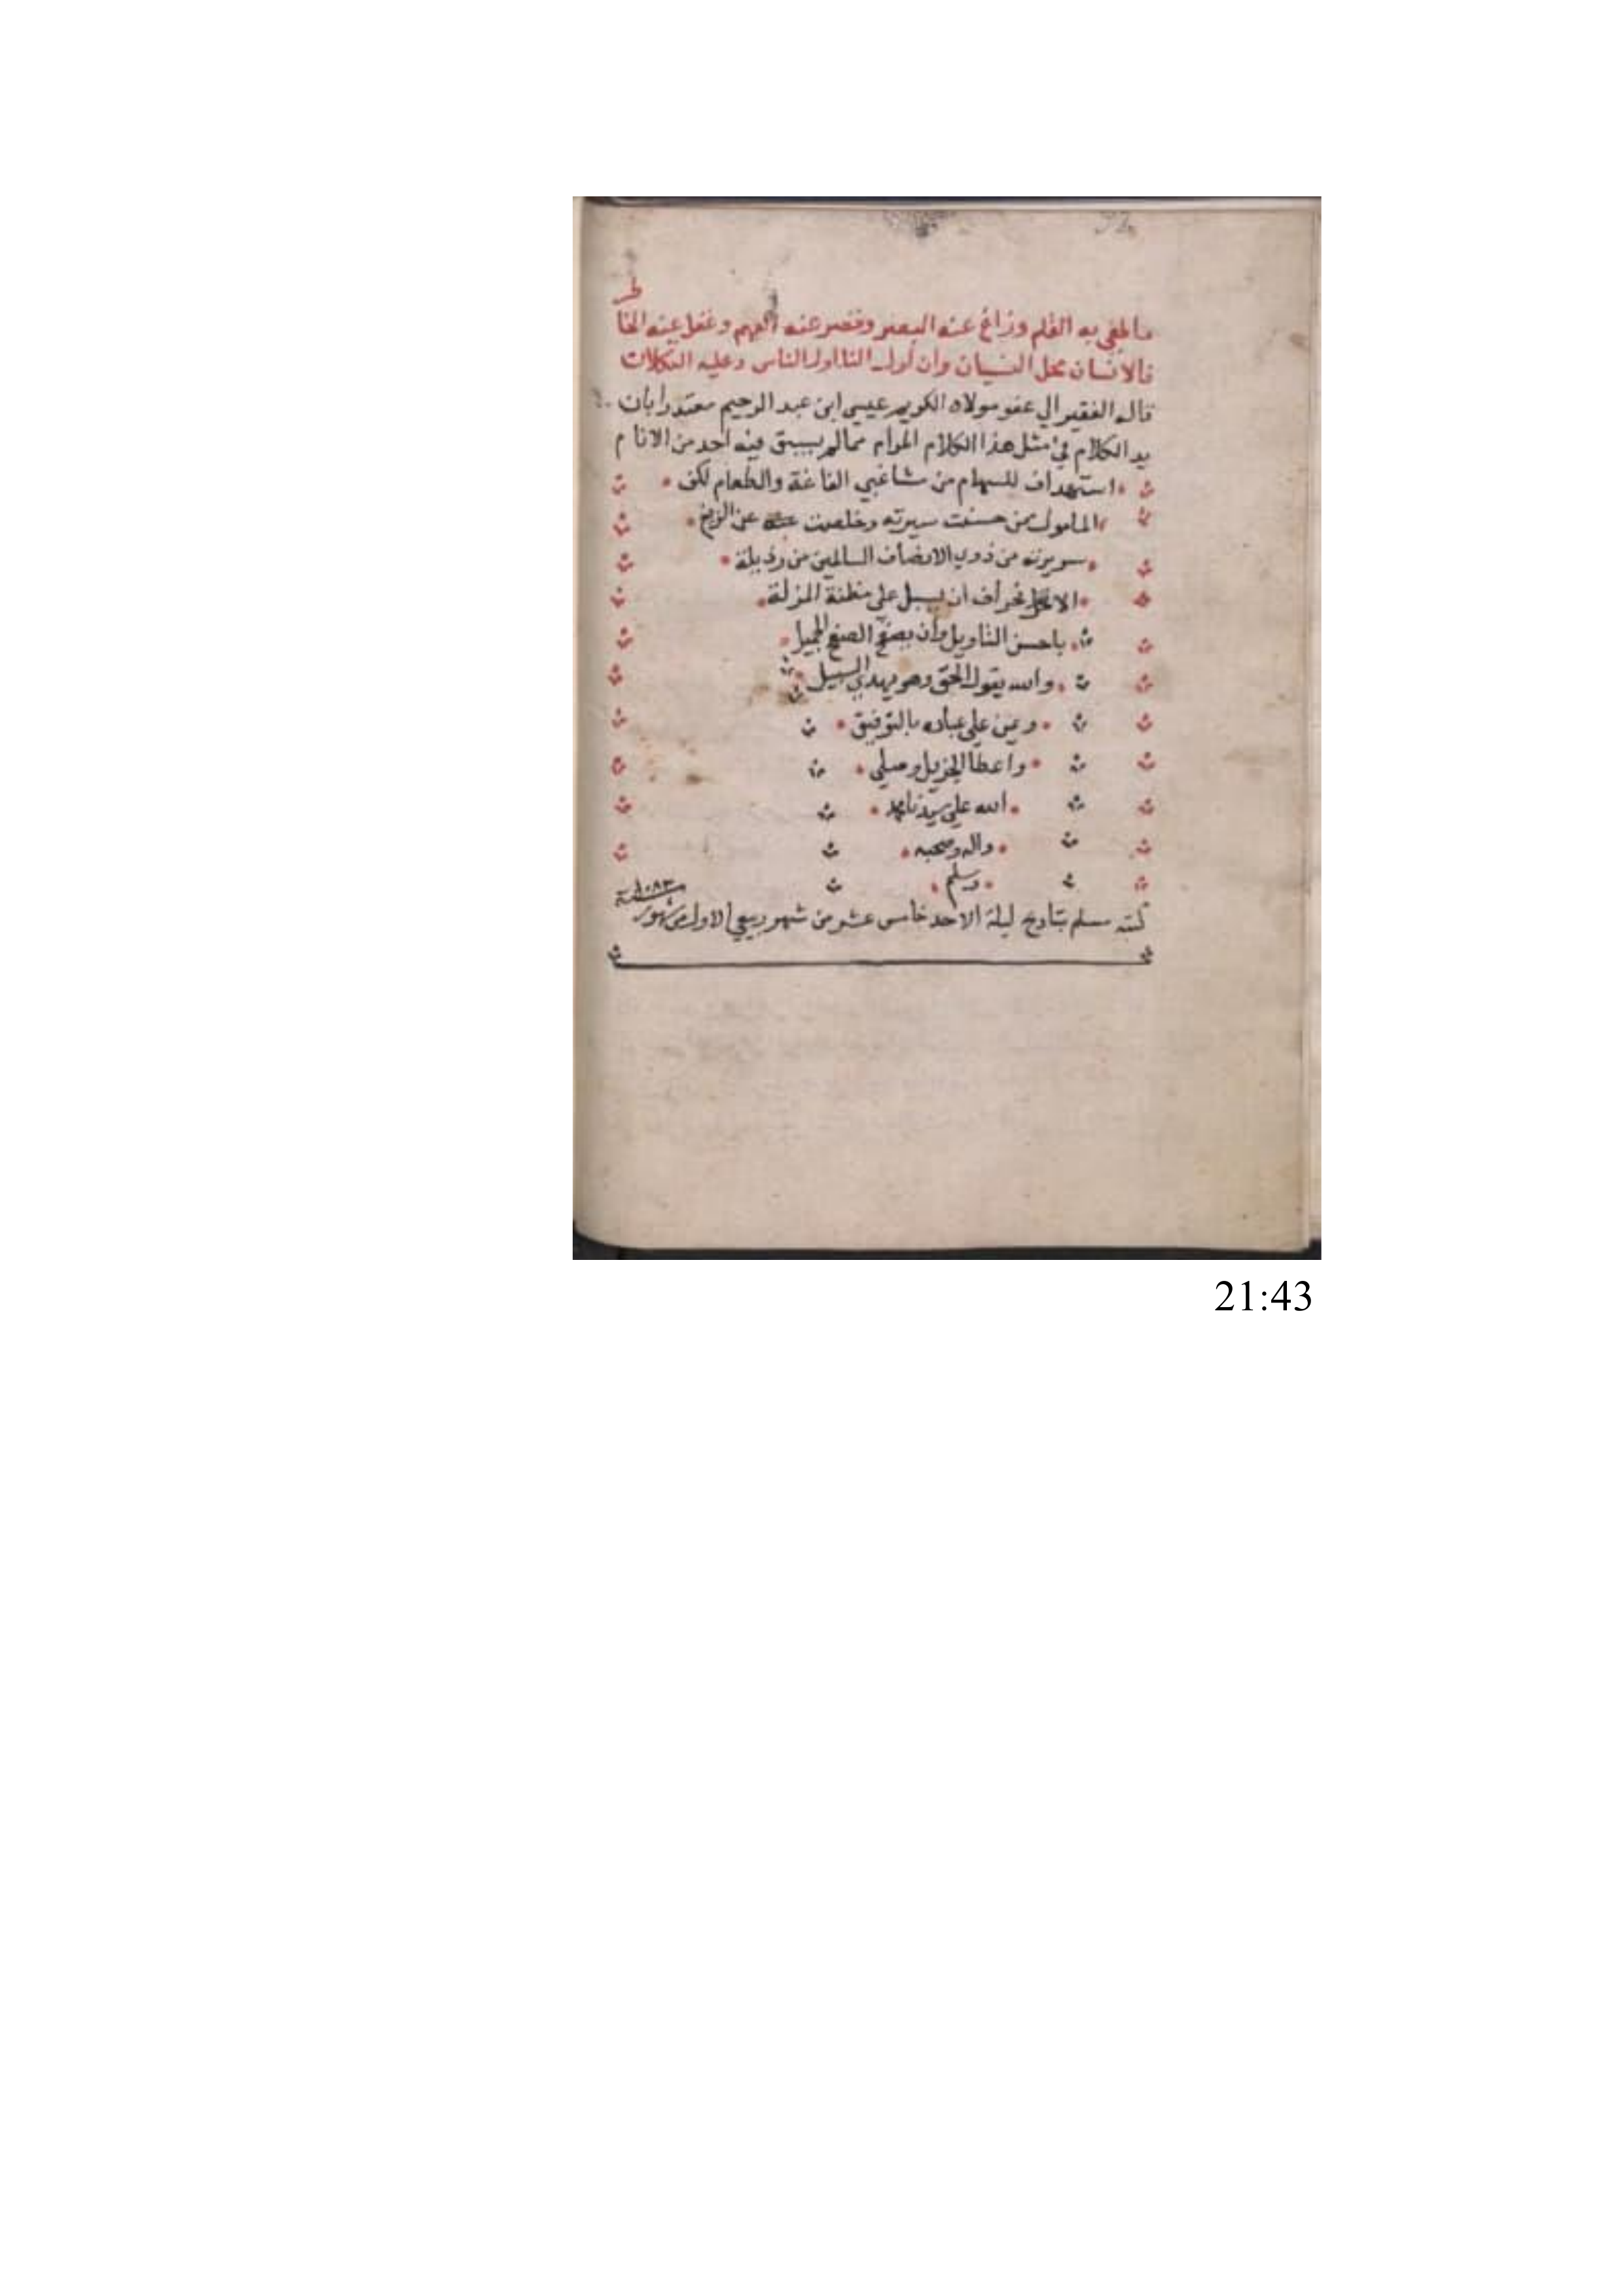 ما طغى به القلم وزاغ عنه البصر وقصر عنه الفهم وغفل عنه الخا
طر
فالانسان محل النسيان وان اول الناس وعليه التكلان
قاله الفقير الي عفو مولاه الكريم عيسي ابن عبد الرحيم معتذرا بان
يد الكلام في مثل هذا الكلام المرام مما لم يسبق فيه احد من الانام
استهداف للسهام من شاغبي والطغام لكن
المامول ممن حسنت سيرته وخلصت عن الزيغ
سريرته من ذوي الانصاف السالمين من رذيلة
الانحراف ان يسبل علي مظنة المزلة
باحسن التاويل وان يصفح الصفح الجميل
والله يقول الحق وهو يهدي السبيل
ويمن علي عباده بالتوفيق
واعطا الجزيل وصلي
الله علي سيدنا محمد
واله وصحبه
وسلم
كتبه مسلم بتاريخ ليلة الاحد خامس عشر من شهر ربيع الاول من شهور
سنة ١٠٨٣
21:43